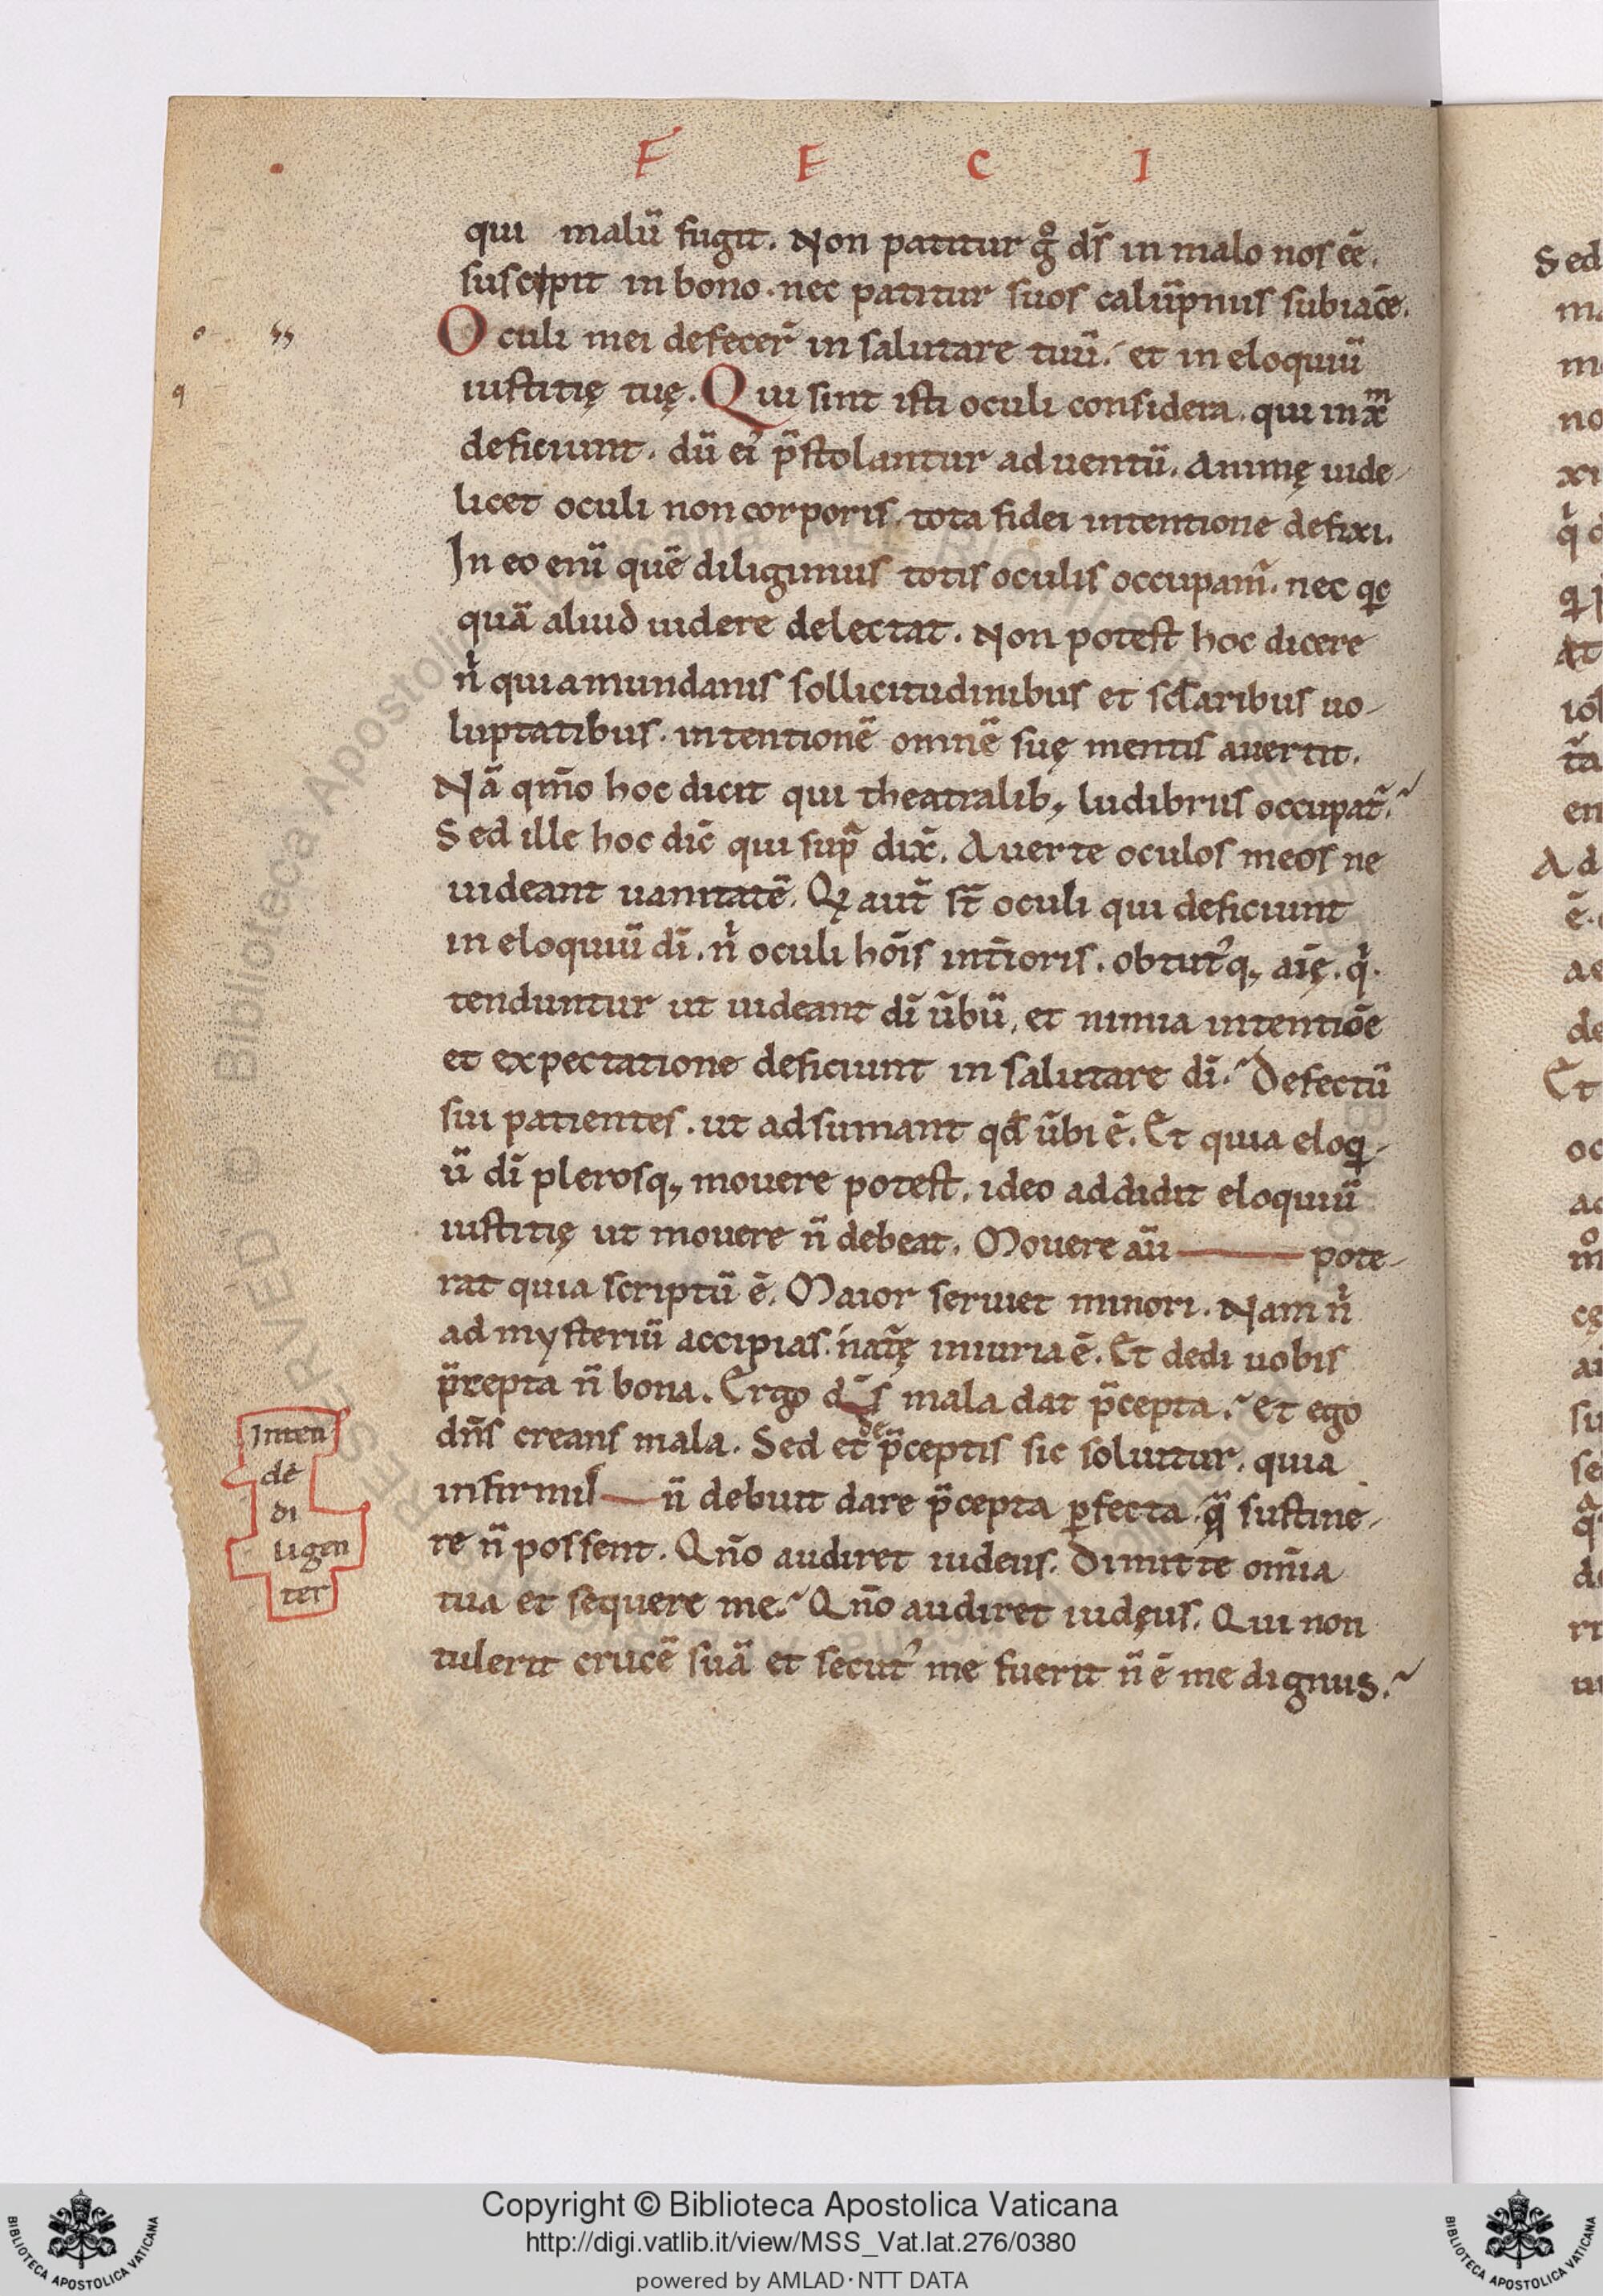 F E C I
qui malū fugit. Non patitur gͦ ds̄ in malo nos eē.
suscipit in bono. nec patitur suos calūpniis subiacē.
Oculi mei defecer̄ in salutare tuū. et in eloquiū
iustitię tuę. Qui sint isti oculi considera. qui in xm̄
deficiunt. dū ei᾽ p̄stolantur aduentū. Animę uide-
licet oculi non corporis. tota fidei intentione defixi.
In eo enī quē diligimus totis oculis occupam̄. nec qc
quā aliud uidere delectat. Non potest hoc dicere
nͥ qui a mundanis sollicitudinibus et sclaribus uo-
luptatibus. intentionē omnē suę mentis auertit.
Nā qm̄o hoc dicit qui theatralib; ludibriis occupat̄.
Sed ille hoc dic̄ qui sup̄ dix̄. Auerte oculos meos ne
uideant uanitatē. Qͥ aut̄ st̄ oculi qui deficiunt
in eloquiū dī. nͥ oculi hoīs int̄ioris. obtut᾽q; aīę. qͥ
tenduntur ut uideant dī ūbū, et nimia intentiōe
et expectatione deficiunt in salutare dī. Defectū
sui patientes. ut adsumant qd̄ ūbi ē. Et quia eloqͥ-
ū dī plerosq; mouere potest. ideo addidit eloquiū
iustitię ut mouere n̄ debeat. Mouere aū pote-
rat quia scriptū ē. Maior seruiet minori. Nam nͥ
ad mysteriū accipias. nat̄ę iniuria ē. Et dedi uobis
p̄cepta n̄ bona. Ergo ds̄ mala dat p̄cepta. et ego
dn̄s creans mala. Sed et de p̄ceptis sic soluitur. quia
infirmis n̄ debuit dare p̄cepta ꝑfecta. q̄ sustine-
re n̄ possent. Qn̄o audiret iudeus. Dimitte om̄ia
tua et sequere me. Qn̄o audiret iudęus. Qui non
tulerit crucē suā et secut᾽ me fuerit n̄ ē me dignus.
Inten
de
di
ligen
ter
Copyright © Biblioteca Apostolica Vaticana
http://digi.vatlib.it/view/MSS_Vat.lat.276/0380
powered by AMLAD·NTT DATA
BIBLIOTECA APOSTOLICA VATICANA
BIBLIOTECA APOSTOLICA VATICANA